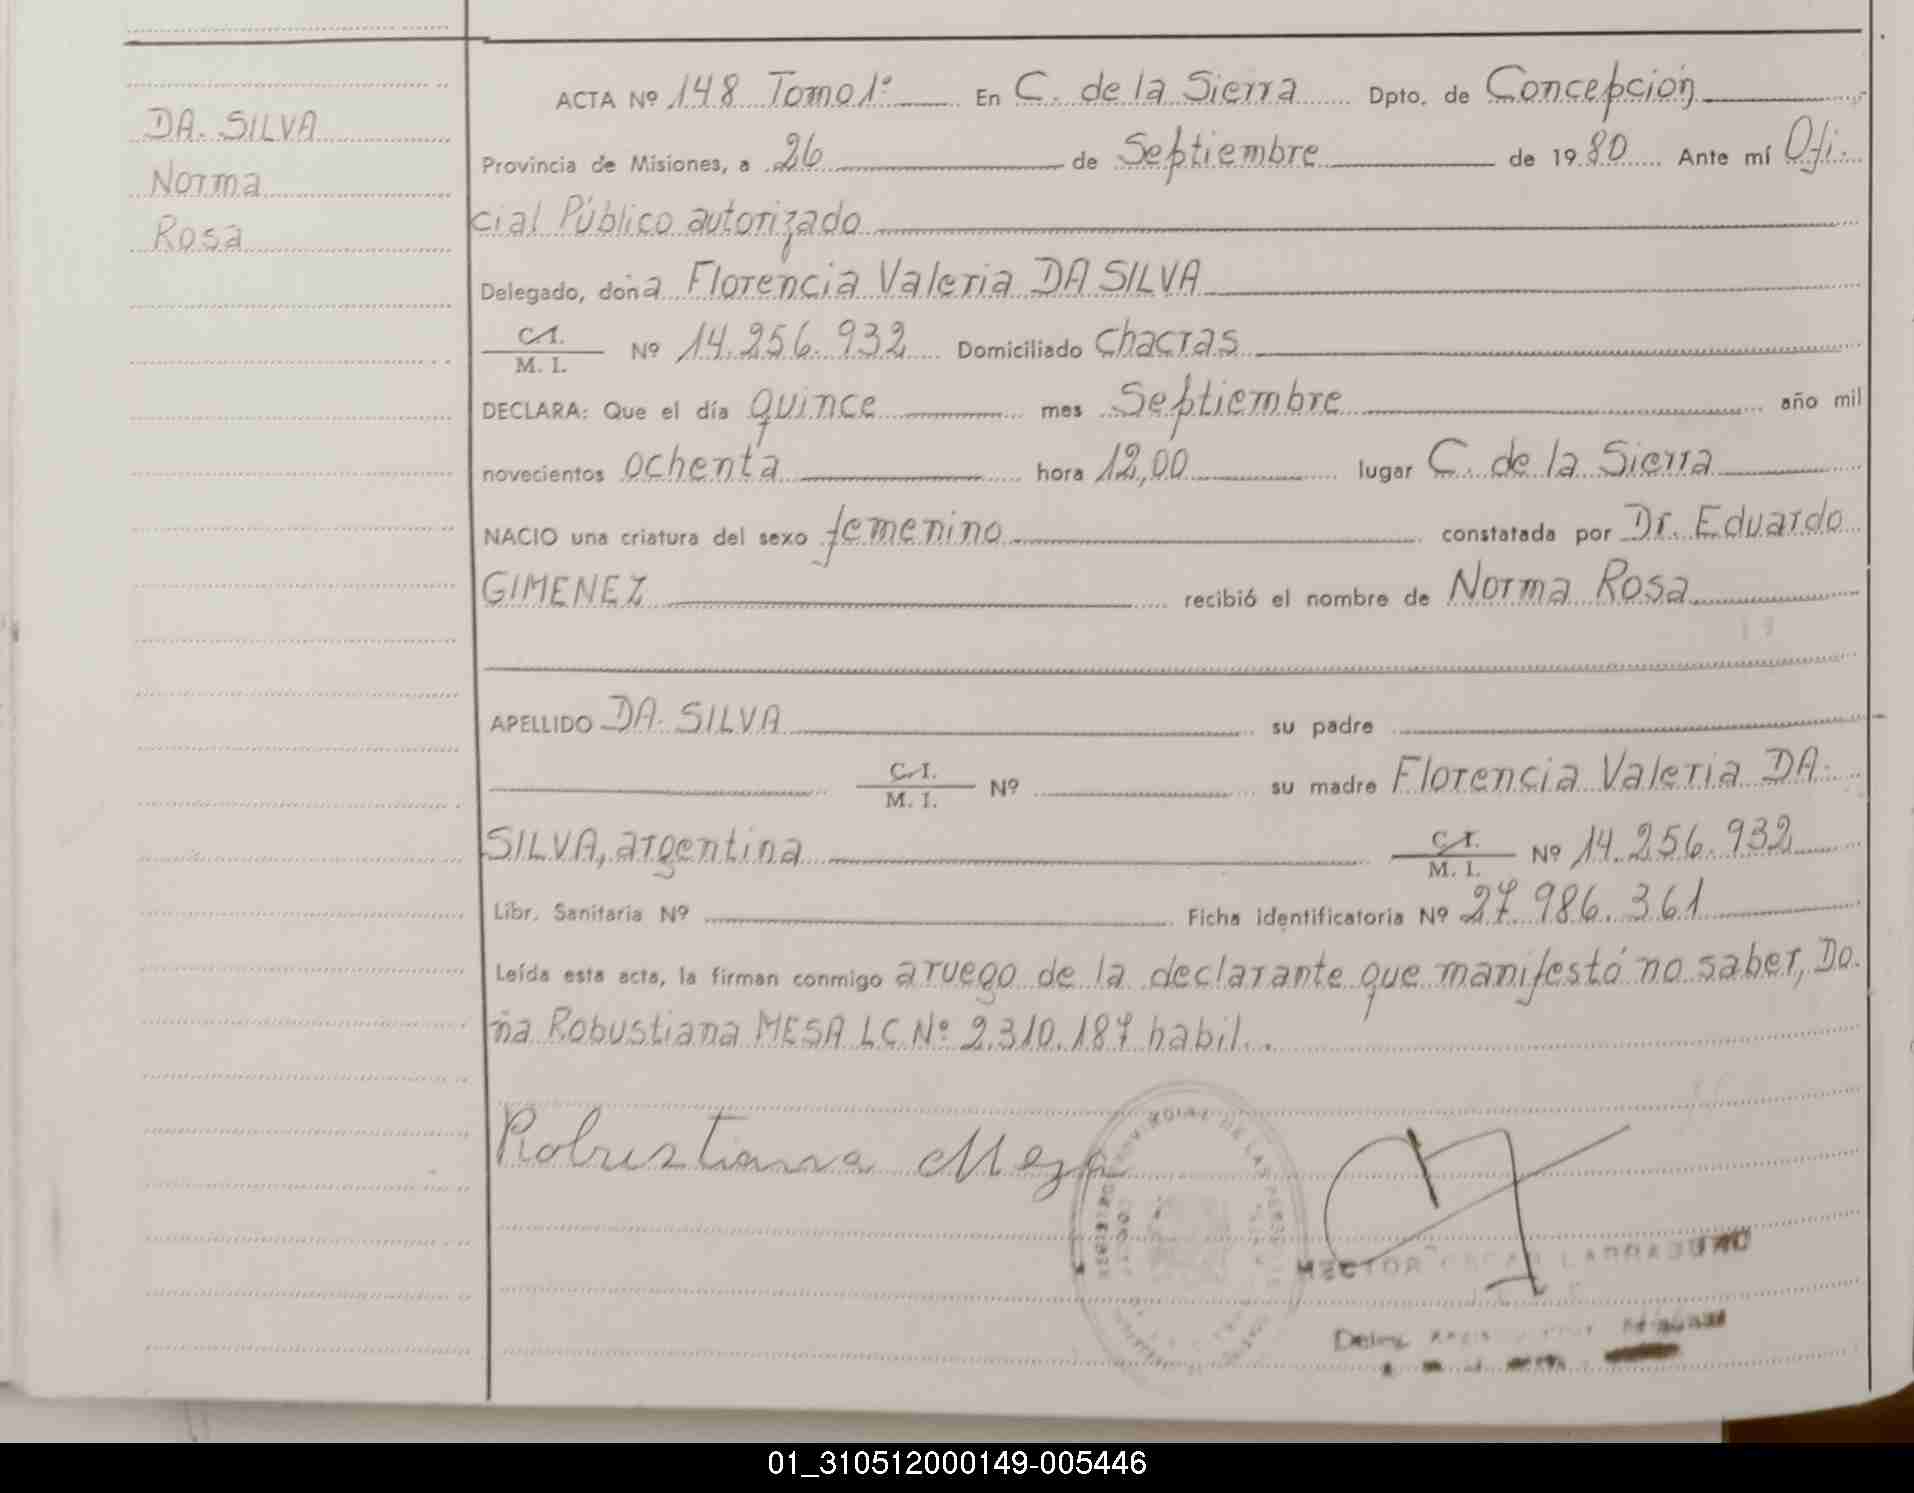 DA. SILVA
Norma
Rosa
ACTA Nº 148 Tomo 1º En C. de la Sierra Dpto. de Concepción
Provincia de Misiones, a 26 de Septiembre de 1980 Ante mí Ofi.
cial Público autorizado
Delegado, doña Florencia Valeria DA SILVA
C.I.
M. I. Nº 14.256.932 Domiciliado Chacras
DECLARA: Que el día quince mes Septiembre año mil
novecientos ochenta hora 12,00 lugar C. de la Sierra
NACIO una criatura del sexo femenino constatada por Dr. Eduardo
GIMENEZ recibió el nombre de Norma Rosa
APELLIDO DA. SILVA su padre
C.I.
M. I. Nº su madre Florencia Valeria DA.
SILVA, argentina C.I.
M. I. Nº 14.256.932
Libr. Sanitaria Nº Ficha identificatoria Nº 27.986.361
Leída esta acta, la firman conmigo a ruego de la declarante que manifestó no saber, Do.
ña Robustiana MESA LC Nº 2.310.187 habil..
Robustiana Meza
HECTOR
01_310512000149-005446